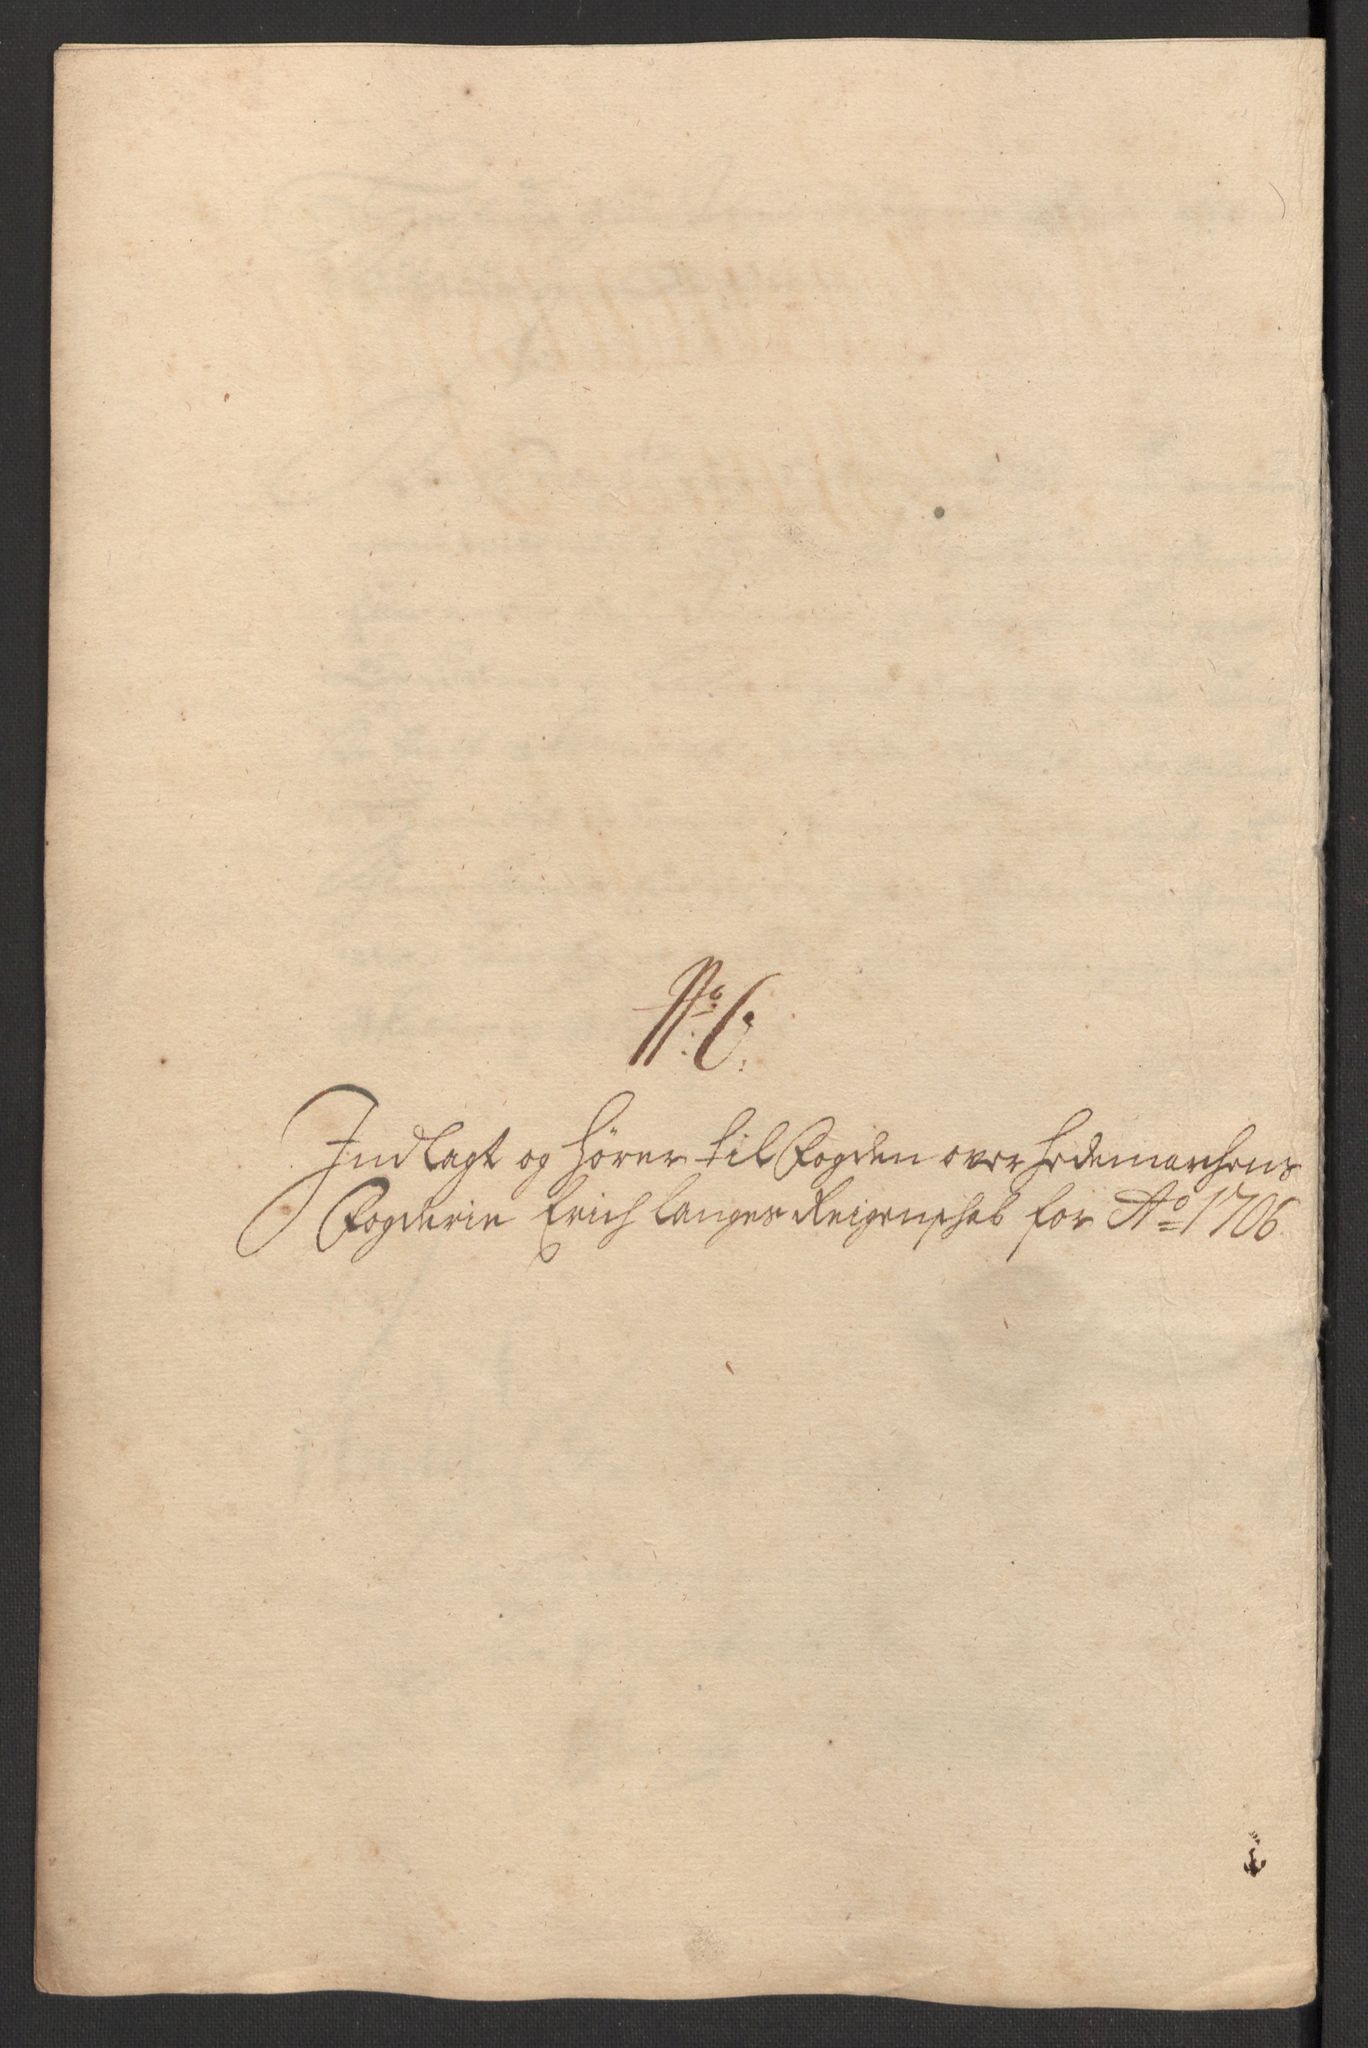 No 6.
Indlagt og hører til Fogden over Hedemarchens
Fogderie Erich Langes Reigenschab for Ao 1706